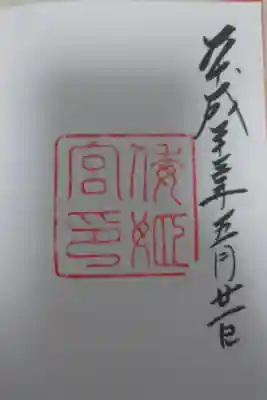 平成二十三年五月廿一日
倭姫
宮印